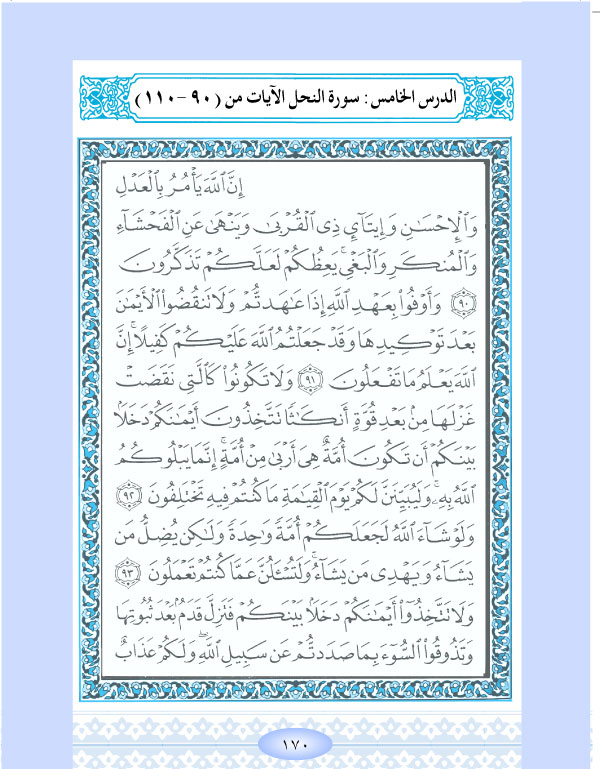 الدرس الخامس : سورة النحل الآيات من (٩٠-١١٠)
إِنَّ ٱللَّهَ يَأْمُرُ بِٱلْعَدْلِ
وَٱلْإِحْسَٰنِ وَإِيتَآيِٕ ذِى ٱلْقُرْبَىٰ وَيَنْهَىٰ عَنِ ٱلْفَحْشَآءِ
وَٱلْمُنكَرِ وَٱلْبَغْىِ ۚ يَعِظُكُمْ لَعَلَّكُمْ تَذَكَّرُونَ
٩٠ وَأَوْفُوا۟ بِعَهْدِ ٱللَّهِ إِذَا عَٰهَدتُّمْ وَلَا تَنقُضُوا۟ ٱلْأَيْمَٰنَ
بَعْدَ تَوْكِيدِهَا وَقَدْ جَعَلْتُمُ ٱللَّهَ عَلَيْكُمْ كَفِيلًا ۚ إِنَّ
ٱللَّهَ يَعْلَمُ مَا تَفْعَلُونَ ٩١ وَلَا تَكُونُوا۟ كَٱلَّتِى نَقَضَتْ
غَزْلَهَا مِنۢ بَعْدِ قُوَّةٍ أَنكَٰثًا تَتَّخِذُونَ أَيْمَٰنَكُمْ دَخَلًۢا
بَيْنَكُمْ أَن تَكُونَ أُمَّةٌ هِىَ أَرْبَىٰ مِنْ أُمَّةٍ ۚ إِنَّمَا يَبْلُوكُمُ
ٱللَّهُ بِهِۦ ۚ وَلَيُبَيِّنَنَّ لَكُمْ يَوْمَ ٱلْقِيَٰمَةِ مَا كُنتُمْ فِيهِ تَخْتَلِفُونَ ٩٢
وَلَوْ شَآءَ ٱللَّهُ لَجَعَلَكُمْ أُمَّةً وَٰحِدَةً وَلَٰكِن يُضِلُّ مَن
يَشَآءُ وَيَهْدِى مَن يَشَآءُ ۚ وَلَتُسْـَٔلُنَّ عَمَّا كُنتُمْ تَعْمَلُونَ ٩٣
وَلَا تَتَّخِذُوٓا۟ أَيْمَٰنَكُمْ دَخَلًۢا بَيْنَكُمْ فَتَزِلَّ قَدَمٌۢ بَعْدَ ثُبُوتِهَا
وَتَذُوقُوا۟ ٱلسُّوٓءَ بِمَا صَدَدتُّمْ عَن سَبِيلِ ٱللَّهِ ۖ وَلَكُمْ عَذَابٌ
١٧٠